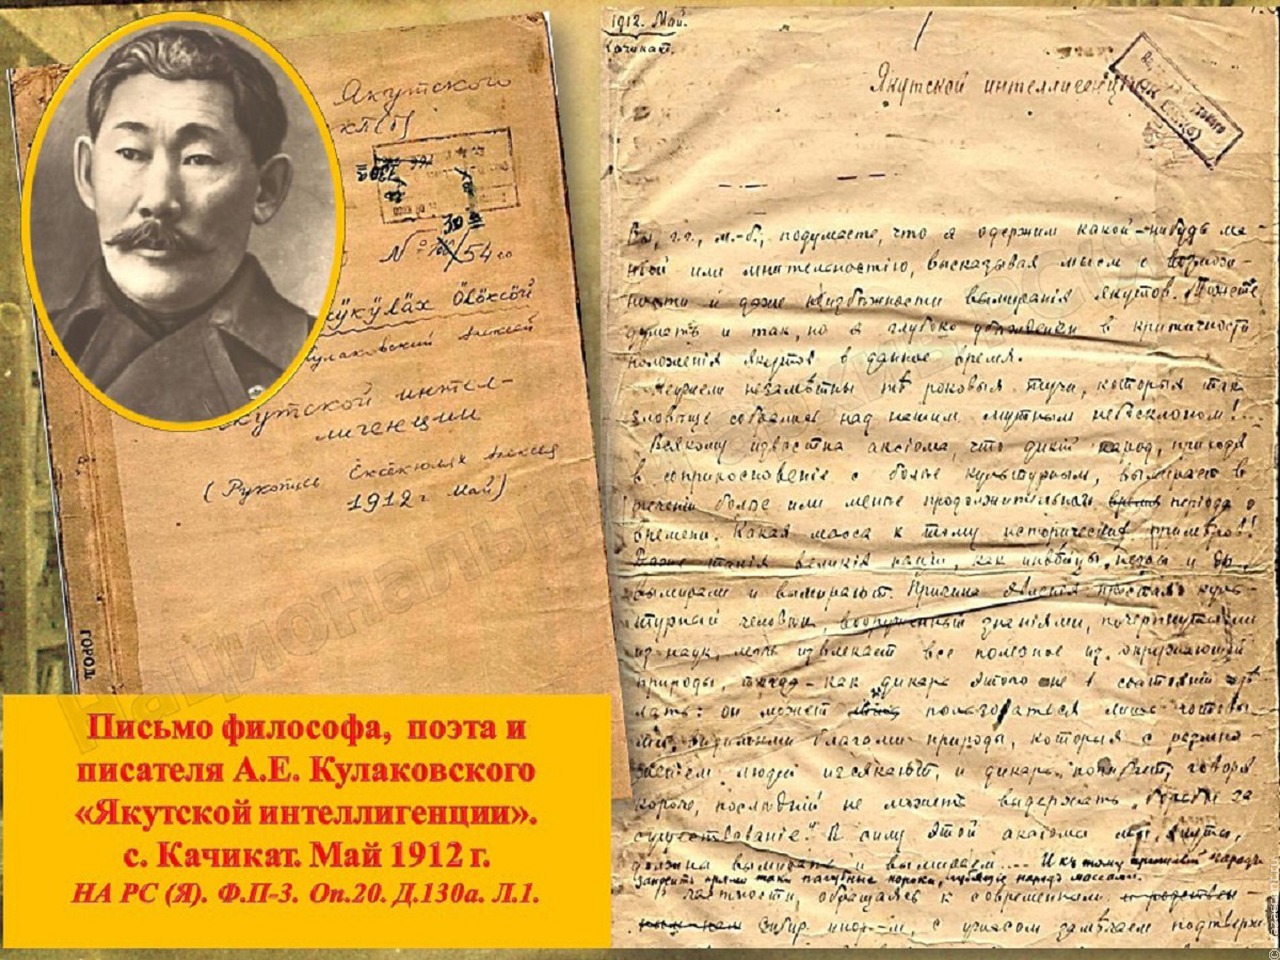 Якутского
№ 54
Күкүлях Öлöксöй
Кулаковский Алексей
Якутской интел-
лигенции
(Рукопись Ексекюлях Алексей
1912 г Май)
ГОРОД
Письмо философа, поэта и
писателя А.Е. Кулаковского
«Якутской интеллигенции».
с. Качикат. Май 1912 г.
НА РС (Я). Ф.П-3. Оп.20. Д.130а. Л.1.
1912. Май.
Качикат.
Якутской интеллигенции
Вы, г.г., м.-б., подумаете, что я одержим какой-нибудь ма-
нией или мнительностію, высказывая мысль о возмож-
ности и даже неизбежности вымиранія якутов. Можете
думать и так, но я глубоко убежден в критичности
положенія якутов в данное время.
Неужели незаметны те роковыя тучи, которыя так
зловеще собрались над нашим мутным небосклоном!...
Всякому известна аксіома, что дикій народ, приходя
в соприкосновеніе с более культурным, вымирает в
теченіи более или менее продолжительнаго время періода
времени. Какая масса к тому исторических примеров!
Даже такія великія націи, как инвейцы, и др.
вымирали и вымирают. Причина явленія простая: куль-
турный человек, вооруженный знаніями, почерпнутыми
из наук, извлекает все полезное из окружающей
природы, тогда-как дикарь этого не в состояніи де-
лать: он может пользоваться лишь готовы-
ми, видимыми благами природы, которыя с размно-
женіем людей изсякают, и дикарь погибает, говоря
короче, последній не может выдержать "борьбы за
существованіе". В силу этой аксіомы мы, якуты,
должны вымирать и вымираем.... И к тому
пагубные пороки, народ массами.
В частности, обращаясь к современным
сибир. инор-м, с ужасом замечаем подтверж-